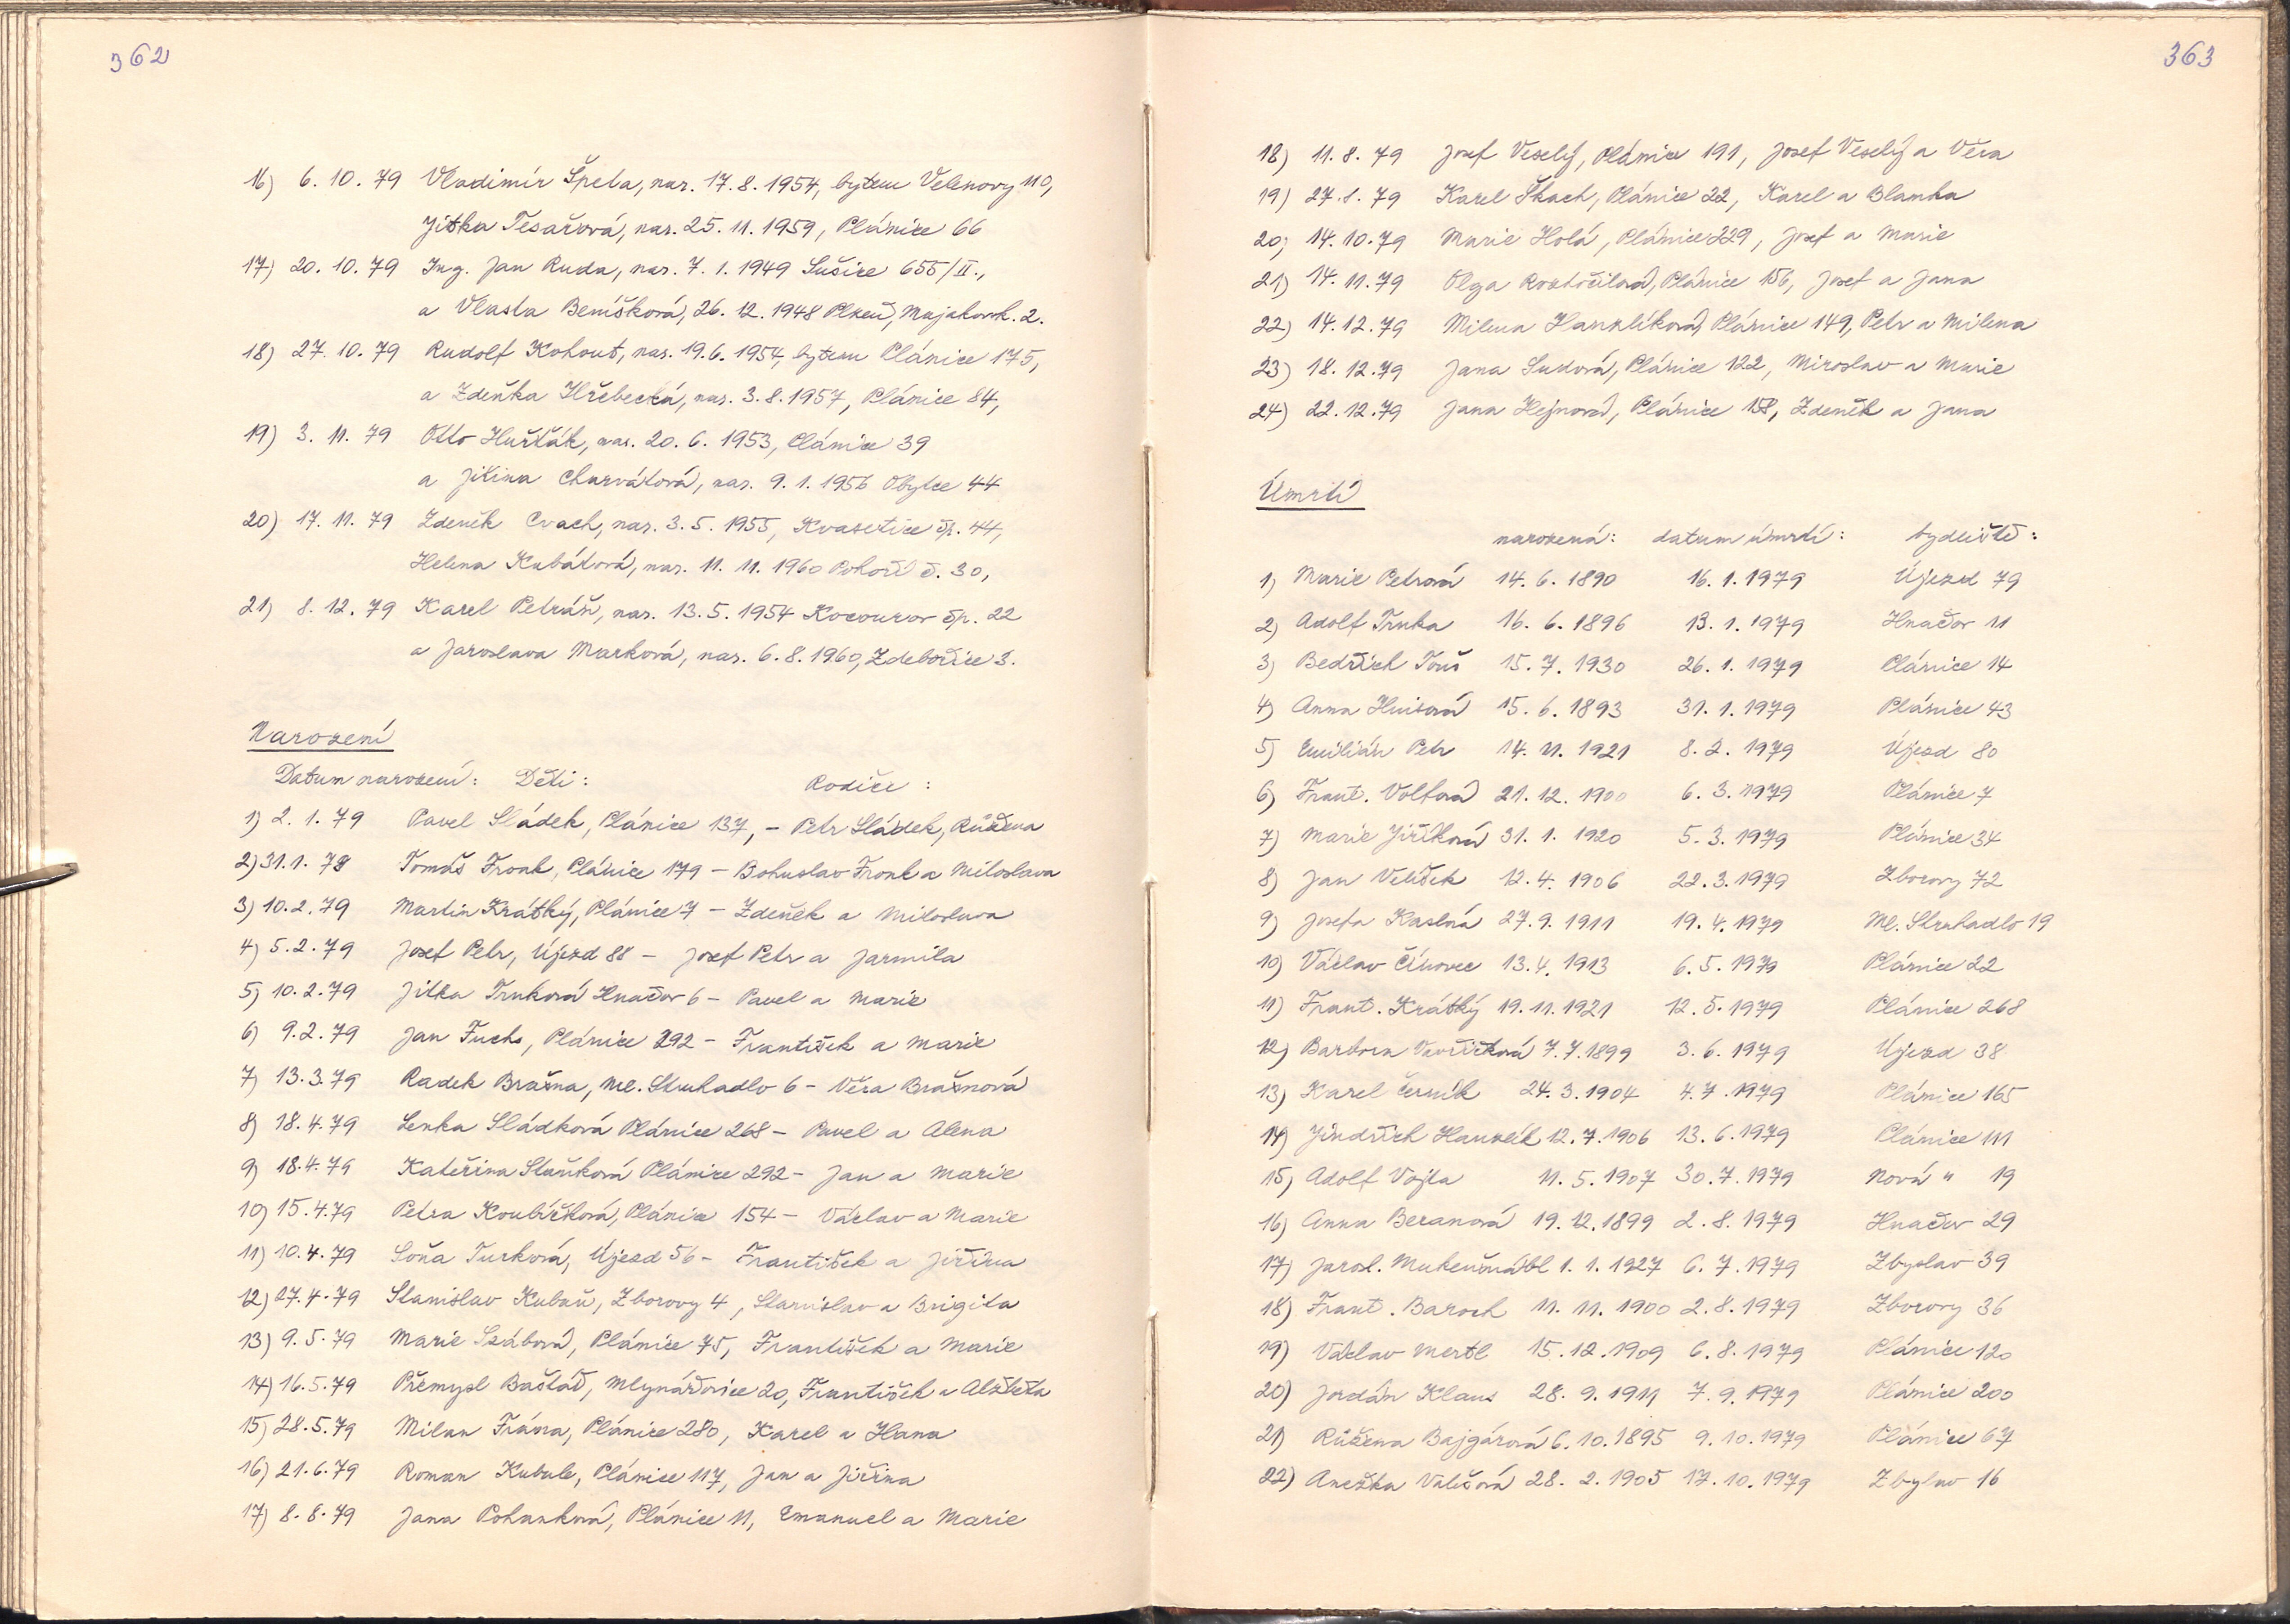 362
16) 6. 10. 79 Vladimír Špeta, nar. 17. 8. 1954, bytem Velenovy 110,
Jitka Tesařová, nar. 25. 11. 1959, Plánice 66
17) 20. 10. 79 Ing. Jan Ruda, nar. 7. 1. 1949 Sušice 655/II.,
a Vlasta Benišková, 26. 12. 1948 Plzeň, Majakovk. 2.
18) 27. 10. 79 Rudolf Kohout, nar. 19. 6. 1954, bytem Plánice 175,
a Zdeňka Hřebecká, nar. 3. 8. 1957, Plánice 84,
19) 3. 11. 79 Otto Huřťák, nar. 20. 6. 1953, Plánice 39
a Jiřina Charvátová, nar. 9. 1. 1956 Obytce 44
20) 17. 11. 79 Zdeněk Cvach, nar. 3. 5. 1955, Kvasetice čp. 44,
Helena Kubátová, nar. 11. 11. 1960 Pohoří č. 30,
21) 8. 12. 79 Karel Petráň, nar. 13. 5. 1954 Kocourov čp. 22
a Jaroslava Marková, nar. 6. 8. 1960, Zdebořice 3.
Narození
Datum narození: Děti: Rodiče:
1) 2. 1. 79 Pavel Sládek, Plánice 137, - Petr Sládek, Růžena
2) 31. 1. 79 Tomáš Fronk, Plánice 179 - Bohuslav Fronk a Miloslava
3) 10. 2. 79 Martin Krátký, Plánice 7 - Zdeněk a Miloslava
4) 5. 2. 79 Josef Petr, Újezd 88 - Josef Petr a Jarmila
5) 10. 2. 79 Jitka Trnková Hnačov 6 - Pavel a Marie
6) 9. 2. 79 Jan Fuchs, Plánice 292 - František a Marie
7) 13. 3. 79 Radek Brašna, Ml. Struhadlo 6 - Věra Brašnová
8) 18. 4. 79 Lenka Sládková Plánice 268 - Pavel a Alena
9) 18. 4. 79 Kateřina Staňková Plánice 292 - Jan a Marie
10) 15. 4. 79 Petra Koubíčková, Plánice 154 - Václav a Marie
11) 10. 4. 79 Soňa Turková, Újezd 56 - František a Jiřina
12) 27. 4. 79 Stanislav Kubaň, Zborovy 4, Stanislav a Brigita
13) 9. 5. 79 Marie Szábová, Plánice 75, František a Marie
14) 16. 5. 79 Přemysl Baštář, Mlynářovice 20, František a Alžběta
15) 28. 5. 79 Milan Trávna, Plánice 280, Karel a Hana
16) 21. 6. 79 Roman Kubale, Plánice 117, Jan a Jiřina
17) 8. 8. 79 Jana Pohanková, Plánice 11, Emanuel a Marie
363
18) 11. 8. 79 Josef Veselý, Plánice 191, Josef Veselý a Věra
19) 27. 8. 79 Karel Škach, Plánice 22, Karel a Blanka
20) 14. 10. 79 Marie Holá, Plánice 229, Josef a Marie
21) 14. 11. 79 Olga Roztočilová, Plánice 156, Josef a Jana
22) 14. 12. 79 Milena Hanzlíková, Plánice 149, Petr a Milena
23) 18. 12. 79 Jana Sudová, Plánice 122, Miroslav a Marie
24) 22. 12. 79 Jana Hejnová, Plánice 158, Zdeněk a Jana
Úmrtí
narozená: datum úmrtí: bydliště:
1) Marie Petrová 14. 6. 1890 16. 1. 1979 Újezd 79
2) Adolf Trnka 16. 6. 1896 13. 1. 1979 Hnačov 11
3) Bedřich Touš 15. 7. 1930 26. 1. 1979 Plánice 14
4) Anna Huisová 15. 6. 1893 31. 1. 1979 Plánice 43
5) Emilián Petr 14. 11. 1921 8. 2. 1979 Újezd 80
6) Frant. Volfová 21. 12. 1900 6. 3. 1979 Plánice 7
7) Marie Jiříková 31. 1. 1920 5. 3. 1979 Plánice 34
8) Jan Velíšek 12. 4. 1906 22. 3. 1979 Zborovy 72
9) Josefa Kaslná 27. 9. 1911 19. 4. 1979 Ml. Struhadlo 19
10) Václav Cihovec 13. 4. 1913 6. 5. 1979 Plánice 22
11) Frant. Krátký 19. 11. 1921 12. 5. 1979 Plánice 268
12) Barbora Vavřičková 7. 7. 1899 3. 6. 1979 Újezd 38
13) Karel Černík 24. 3. 1904 4. 7. 1979 Plánice 165
14) Jindřich Hanzlík 12. 7. 1906 13. 6. 1979 Plánice 111
15) Adolf Vojta 11. 5. 1907 30. 7. 1979 Nová " 19
16) Anna Beranová 19. 12. 1899 2. 8. 1979 Hnačov 29
17) Jarosl. Mukenšnábl 1. 1. 1927 6. 7. 1979 Zbyslav 39
18) Frant. Baroch 11. 11. 1900 2. 8. 1979 Zborovy 36
19) Václav Mertl 15. 12. 1909 6. 8. 1979 Plánice 120
20) Jordán Klaus 28. 9. 1911 7. 9. 1979 Plánice 200
21) Růžena Bajgárová 6. 10. 1895 9. 10. 1979 Plánice 67
22) Anežka Valešová 28. 2. 1905 17. 10. 1979 Zbyslav 16